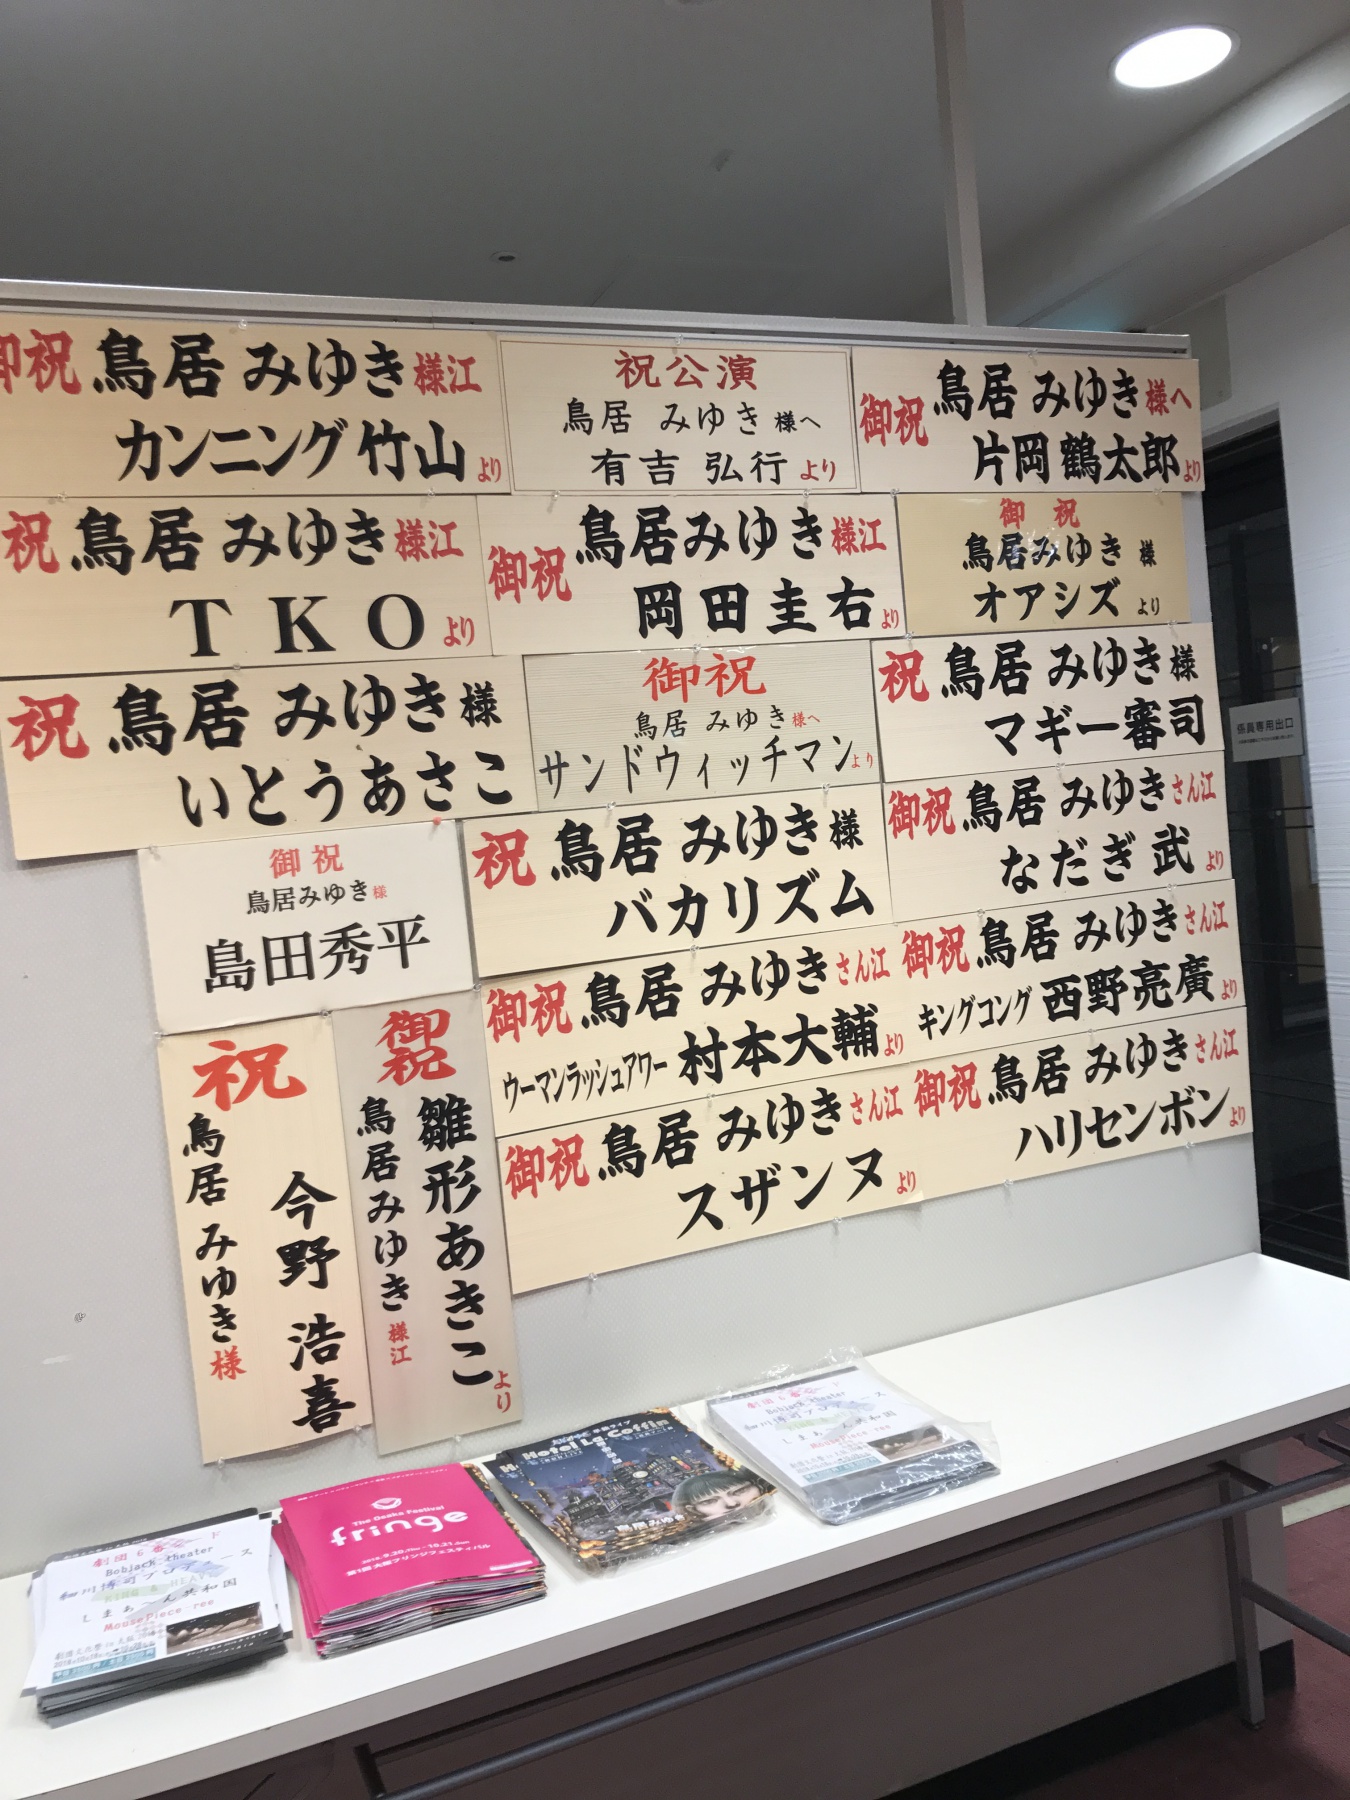 御祝 鳥居 みゆき 様江
カンニング竹山 より
祝公演
鳥居 みゆき 様へ
有吉 弘行 より
御祝 鳥居 みゆき 様へ
片岡 鶴太郎 より
祝 鳥居 みゆき 様江
TKO より
御祝 鳥居 みゆき 様江
岡田圭右 より
御祝
鳥居みゆき 様
オアシズ より
祝 鳥居 みゆき 様
いとうあさこ
御祝
鳥居 みゆき 様へ
サンドウィッチマン より
祝 鳥居 みゆき 様
マギー審司
御祝
鳥居みゆき 様
島田秀平
祝 鳥居 みゆき 様
バカリズム
御祝 鳥居 みゆき さん江
なだぎ 武 より
御祝 鳥居 みゆき さん江
ウーマンラッシュアワー 村本大輔 より
御祝 鳥居 みゆき さん江
キングコング 西野亮廣 より
御祝 鳥居 みゆき さん江
スザンヌ より
御祝 鳥居 みゆき さん江
ハリセンボン より
祝
今野 浩喜
鳥居 みゆき 様
御祝
雛形あきこ より
鳥居 みゆき 様江
係員専用出口
劇団6番シード
Bobjack theater
細川博司プロデュース
しまぁ〜ん共和国
MousePiece-ree
The Osaka Festival
fringe
2018.9.20.Thu-10.21.Sun
第1回大阪フリンジフェスティバル
Hotel La・Coffin
鳥居みゆき
劇団6番シード
Bobjack theater
細川博司プロデュース
しまぁ〜ん共和国
MousePiece-ree